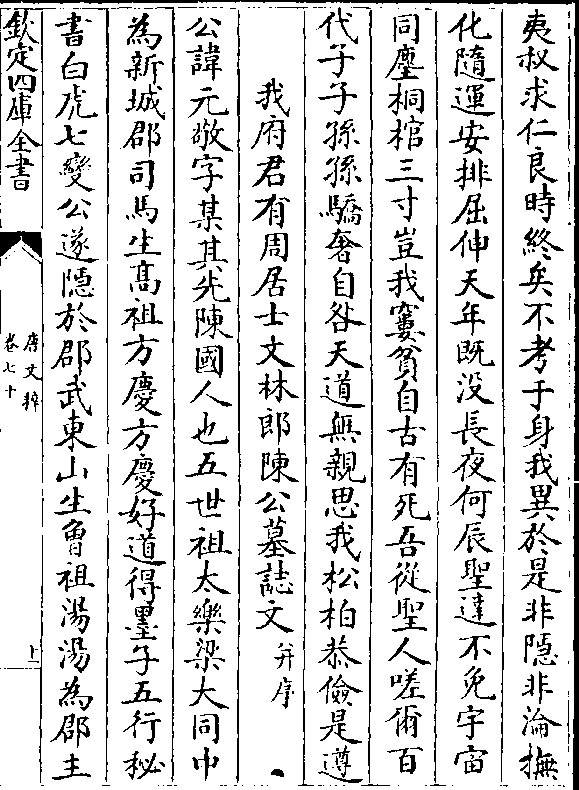 夷叔求仁良時終矣不考于身我異於是非隱非淪撫
化隨運安排屈伸天年旣没長夜何辰聖達不免宇宙
同塵桐棺三寸豈我窶貧自古有死吾從聖人嗟爾百
代子子孫孫驕奢自咎天道無親思我松柏恭儉是遵
我府君有周居士文林郎陳公墓誌文并序
公諱元敬字某其先陳國人也五世祖太樂梁大同中
為新城郡司馬生高祖方慶方慶好道得墨子五行秘
書白虎七變公遂隱於郡武東山生曾祖湯湯為郡主
欽定四庫全書
唐文粹
卷七十